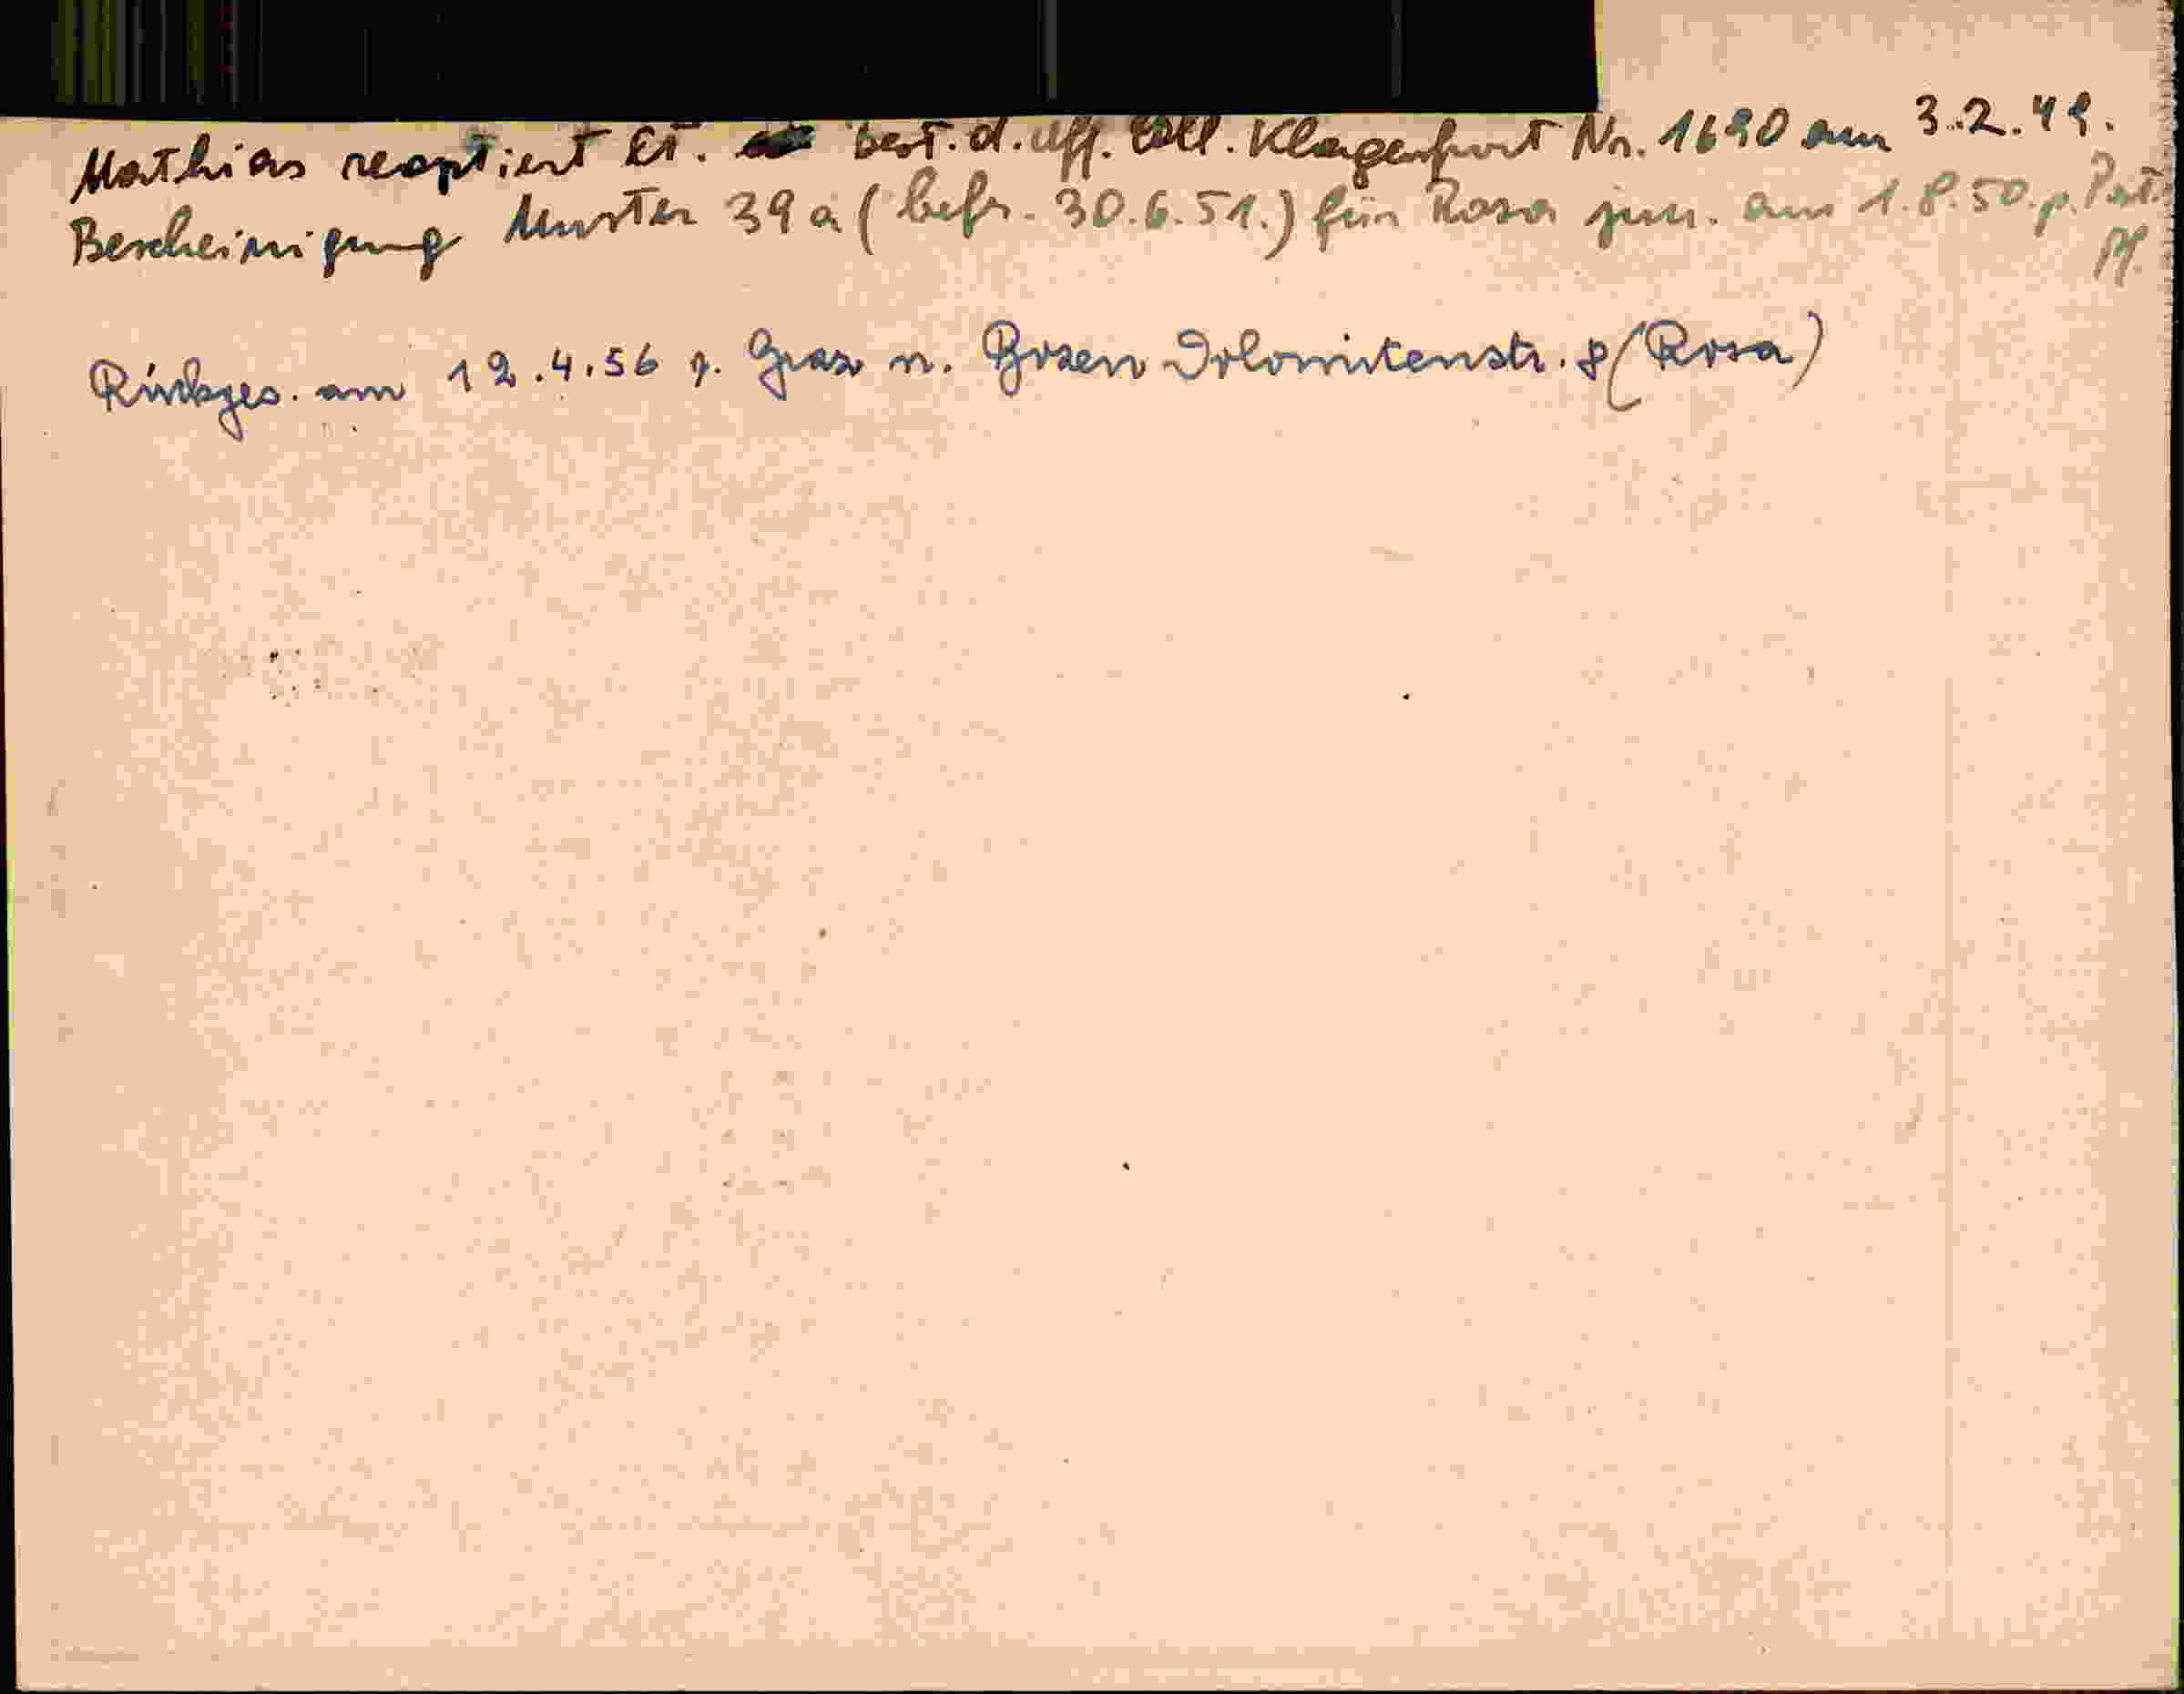 Mathias reoptiert lt. best. d. uff. Coll. Klagenfurt Nr. 1690 am 3.2.49.
Bescheinigung Muster 39a (befr. 30.6.51.) für Rosa jun. am 1.8.50. p. Post.
Rückges. am 12.4.56 v. Graz n. Bozen Dolomitenstr. 8 (Rosa)